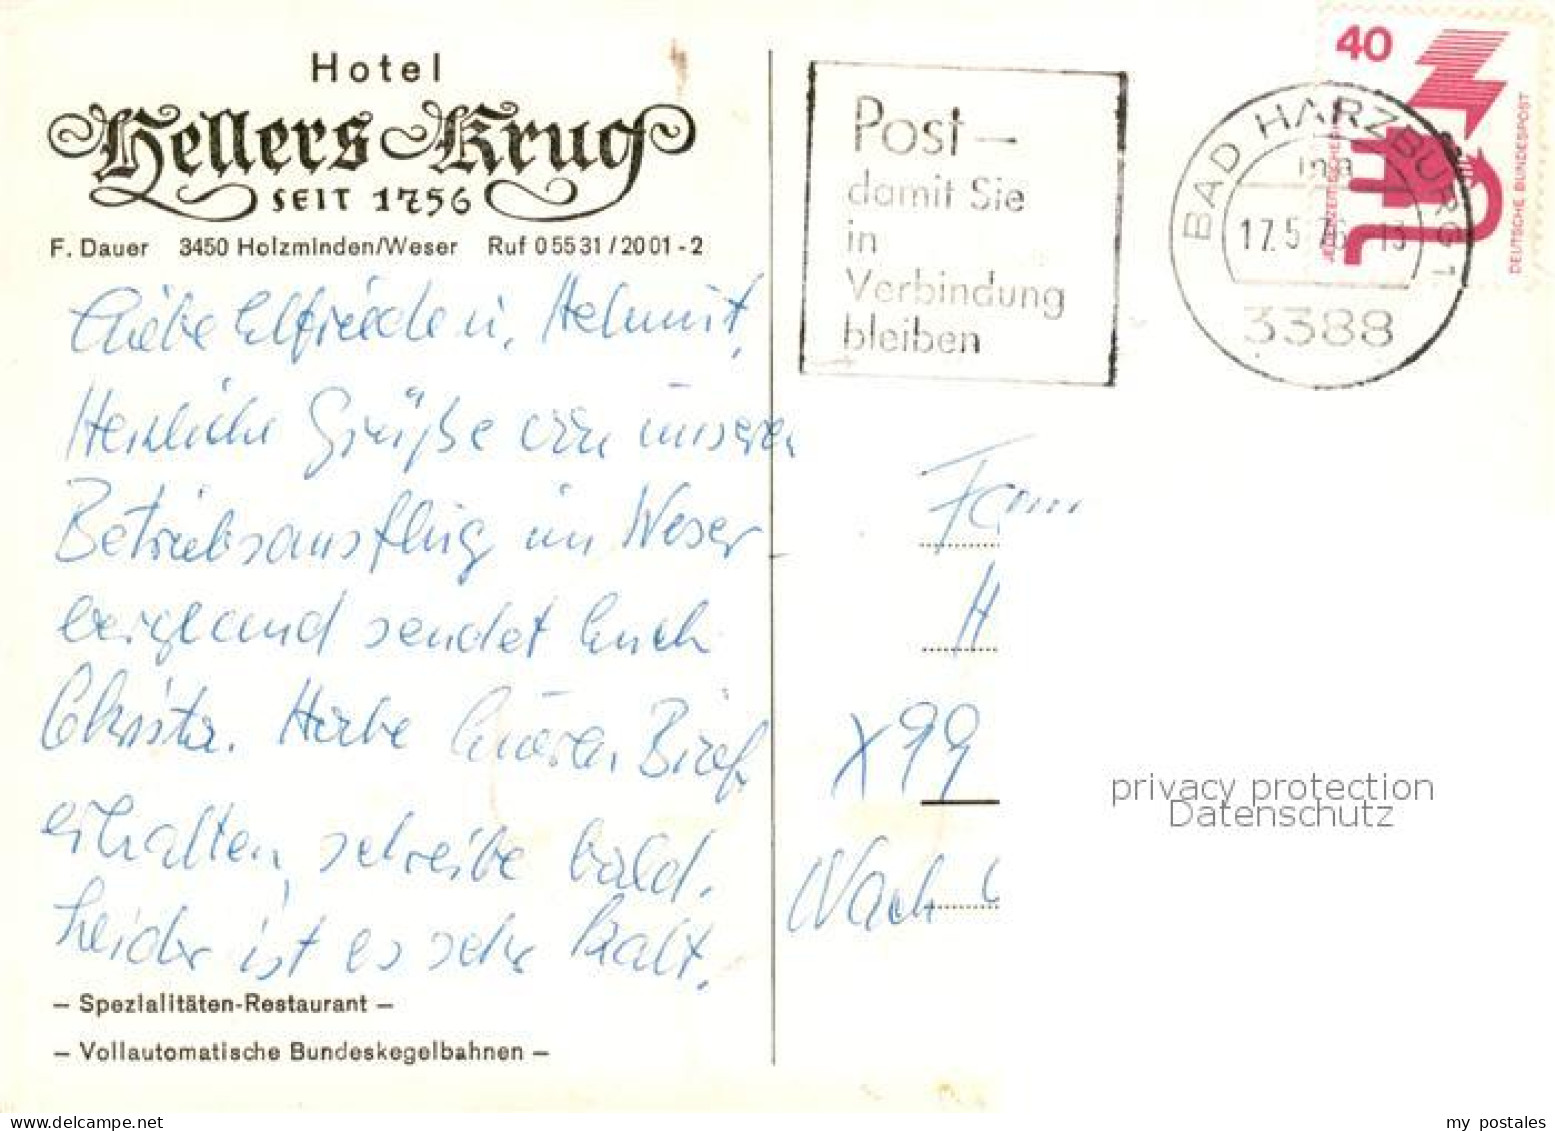 Hotel
Hellers Krug
SEIT 1756
F. Dauer 3450 Holzminden/Weser Ruf 05531/2001-2
Liebe Elfriede u. Helmut,
Herzliche Grüße von unseren
Betriebsausflug im Weser
bergland sendet Euch
Christa. Habe Eueren Brief
erhalten, schreibe bald.
Leider ist es sehr kalt.
– Spezialitäten-Restaurant –
– Vollautomatische Bundeskegelbahnen –
Post –
damit Sie
in
Verbindung
bleiben
BAD HARZBURG 1
17.5
13
3388
40
JEDERZEIT SICHERHEIT
DEUTSCHE BUNDESPOST
Fam
H
X99
Nach
privacy protection
Datenschutz
my postales